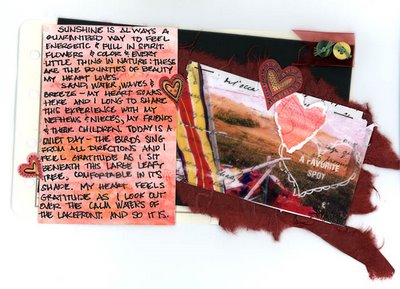 SUNSHINE IS ALWAYS A
GUARANTEED WAY TO FEEL
ENERGETIC & FULL IN SPIRIT.
FLOWERS & COLOR & EVERY
LITTLE THING IN NATURE: THESE
ARE THE BOUNTIES OF BEAUTY
MY HEART LOVES.
SAND, WATER, WAVES &
BREEZE - MY HEART SOARS
HERE AND I LONG TO SHARE
THIS EXPERIENCE WITH MY
NEPHEWS & NIECES, MY FRIENDS
& THEIR CHILDREN. TODAY IS A
QUIET DAY - THE BIRDS SING
FROM ALL DIRECTIONS AND I
FEEL GRATITUDE AS I SIT
BENEATH THIS LARGE LEAFY
TREE, COMFORTABLE IN ITS
SHADE. MY HEART FEELS
GRATITUDE AS I LOOK OUT
OVER THE CALM WATERS OF
THE LAKEFRONT. AND SO IT IS.
A FAVORITE
SPOT